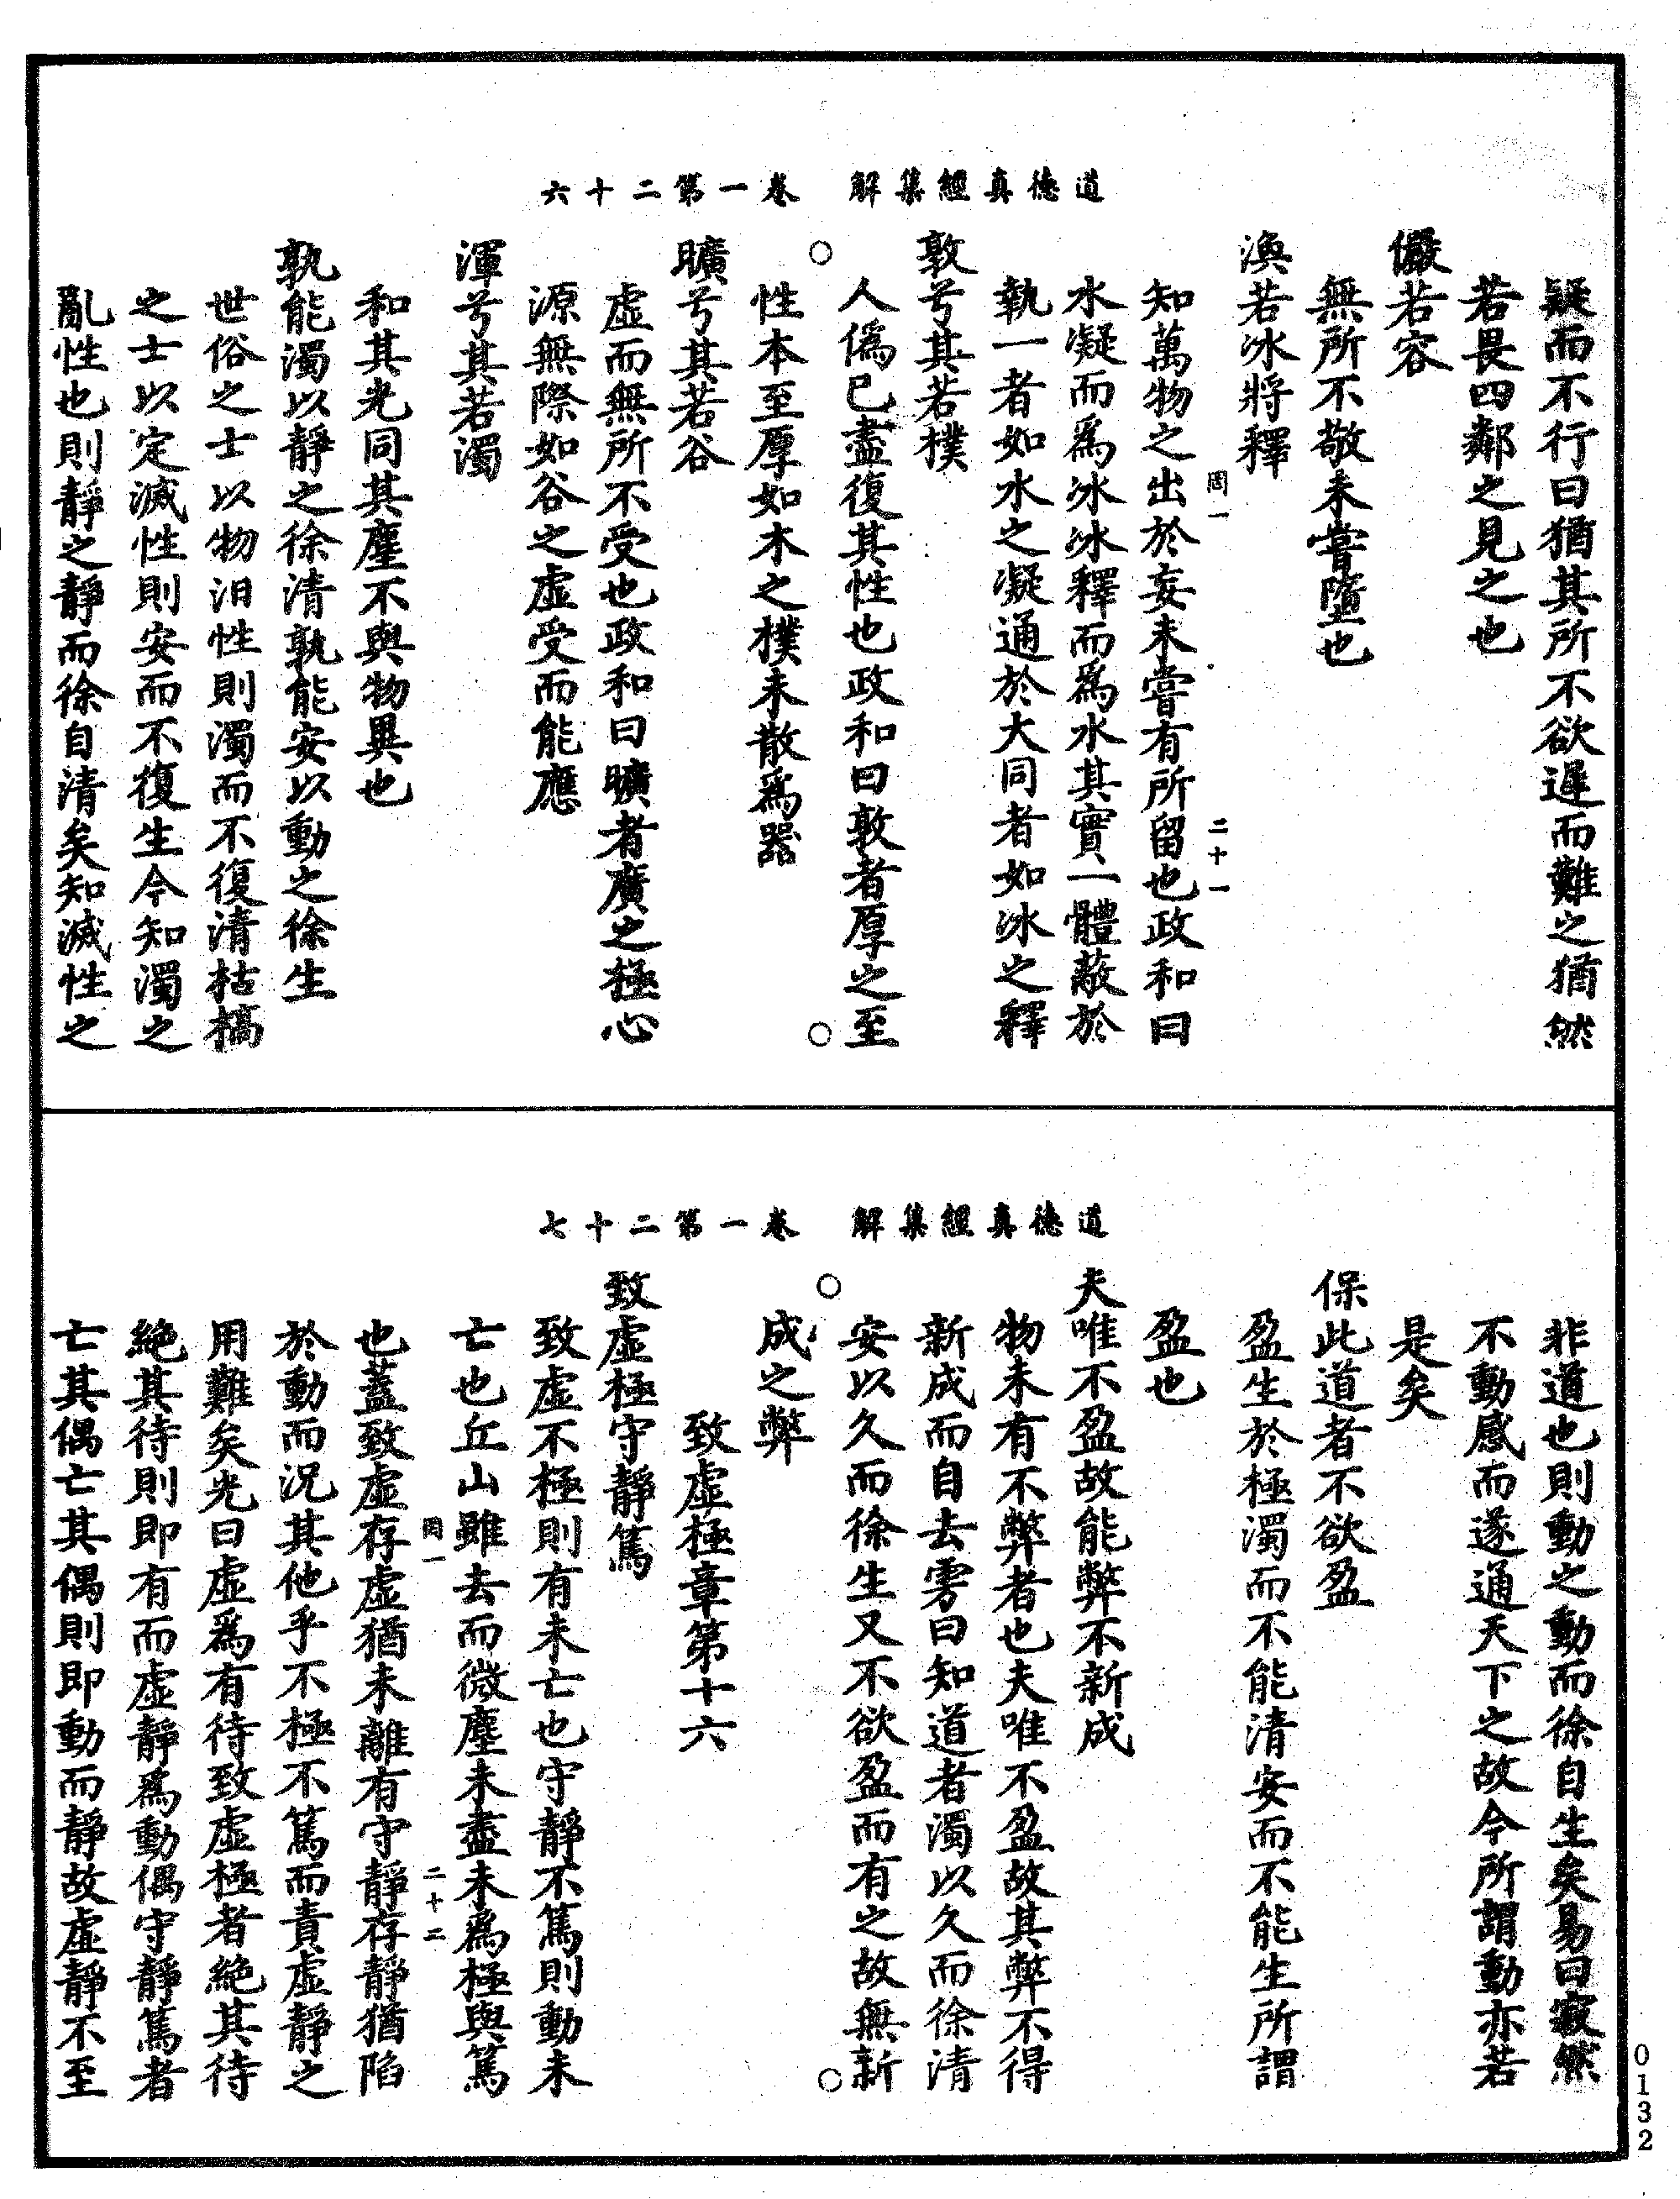 道德真經集解　卷一第二十六
疑而不行曰猶其所不欲遲而難之猶然
若畏四鄰之見之也
儼若容
無所不敬未嘗墮也
渙若冰將釋
罔一　二十一
知萬物之出於妄未嘗有所留也政和曰
水凝而爲冰冰釋而爲水其實一體蔽於
執一者如水之凝通於大同者如冰之釋
敦兮其若樸
人僞已盡復其性也政和曰敦者厚之至
性本至厚如木之樸未散爲器
曠兮其若谷
虛而無所不受也政和曰曠者廣之極心
源無際如谷之虛受而能應
渾兮其若濁
和其光同其塵不與物異也
孰能濁以靜之徐清孰能安以動之徐生
世俗之士以物汩性則濁而不復清枯槁
之士以定滅性則安而不復生今知濁之
亂性也則靜之靜而徐自清矣知滅性之
道德真經集解　卷一第二十七
非道也則動之動而徐自生矣易曰寂然
不動感而遂通天下之故今所謂動亦若
是矣
保此道者不欲盈
盈生於極濁而不能清安而不能生所謂
盈也
夫唯不盈故能弊不新成
物未有不弊者也夫唯不盈故其弊不得
新成而自去雱曰知道者濁以久而徐清
安以久而徐生又不欲盈而有之故無新
成之弊
致虛極章第十六
致虛極守靜篤
致虛不極則有未亡也守靜不篤則動未
亡也丘山雖去而微塵未盡未爲極與篤
罔一　二十二
也蓋致虛存虛猶未離有守靜存靜猶陷
於動而況其他乎不極不篤而責虛靜之
用難矣光曰虛爲有待致虛極者絶其待
絶其待則即有而虛靜爲動偶守靜篤者
亡其偶亡其偶則即動而靜故虛靜不至
0132